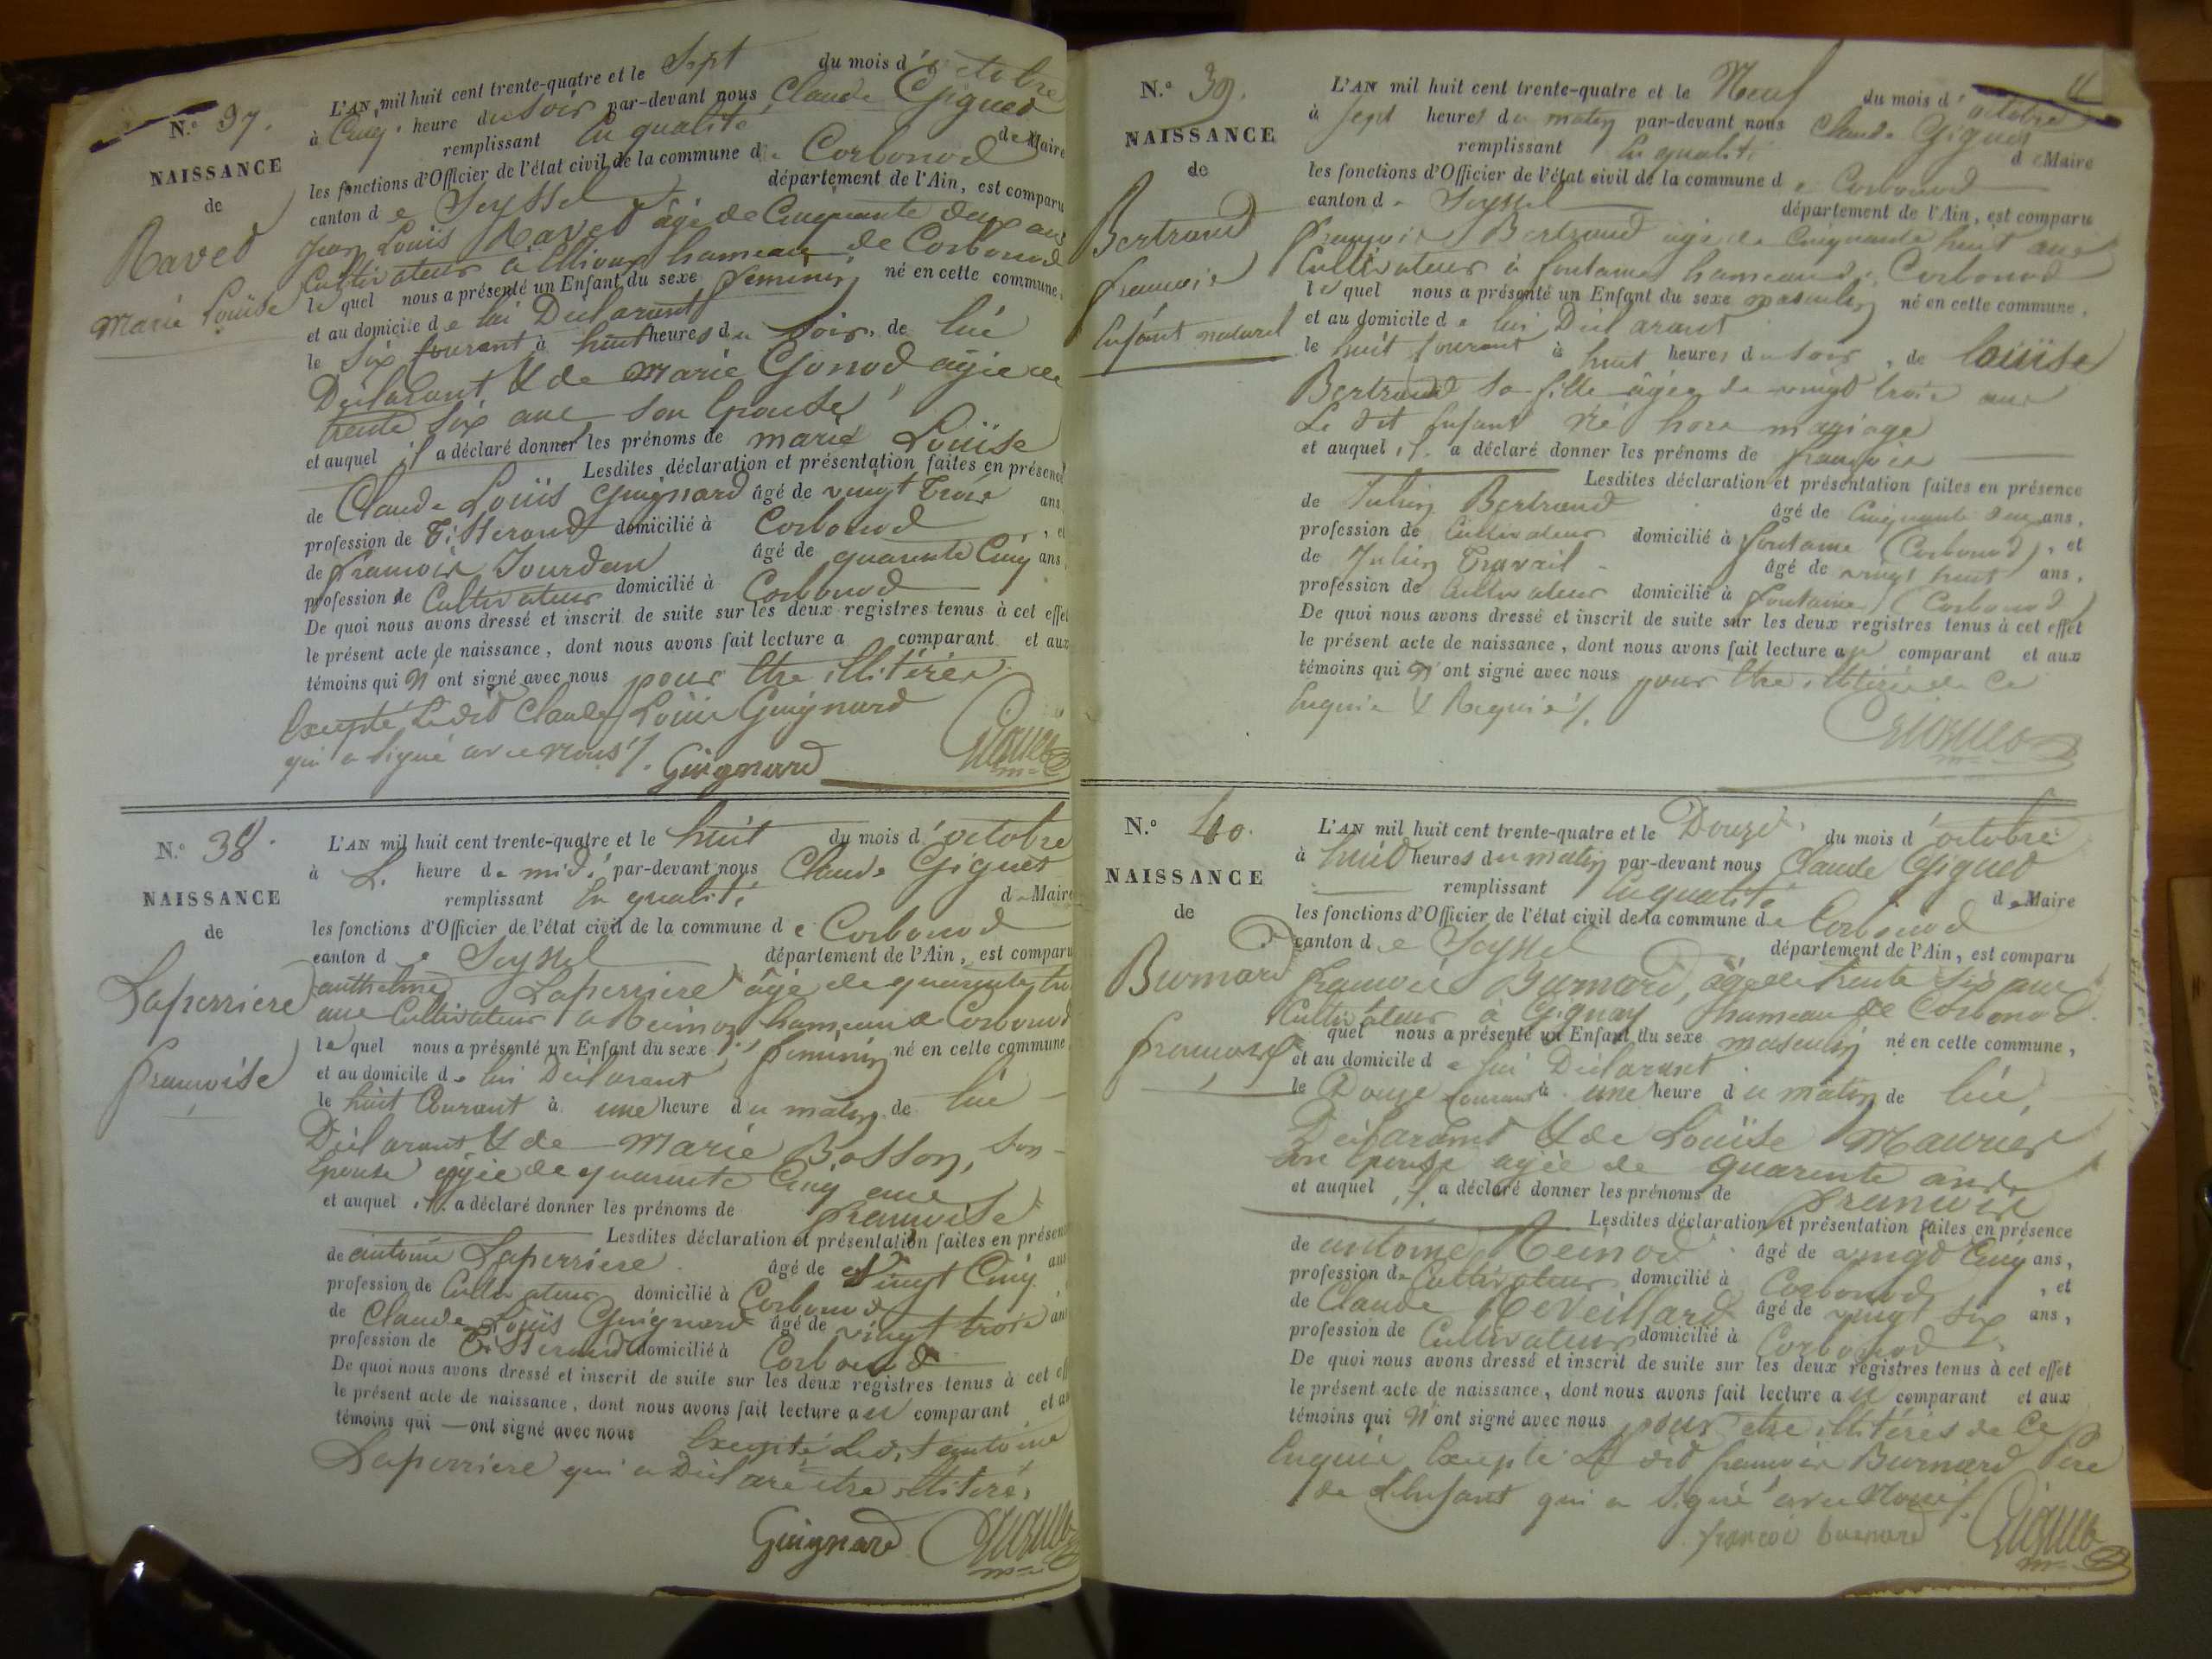 N.º 37.
NAISSANCE
de
Raved
Marie Louïse
L'AN mil huit cent trente-quatre et le Sept du mois d'octobre
à Cinq heure du Soir par-devant nous Claude Gigued
remplissant En qualité de Maire
les fonctions d'Officier de l'état civil de la commune de Corbonod
canton de Seyssel département de l'Ain, est comparu
Jean Louïs Raved âgé de Cinquante deux ans
Cultivateur à hameau de Corbonod
le quel nous a présenté un Enfant du sexe féminin né en cette commune,
et au domicile de lui Déclarant
le Six Courant à huit heures du Soir, de lui
Déclarant & de Marie Gonod agée de
trente Six ans son Epouse
et auquel il a déclaré donner les prénoms de marie Louïse
Lesdites déclaration et présentation faites en présence
de Claude Louïs Guignard âgé de vingt trois ans
profession de Tisserand domicilié à Corbonod, et
de francois Jourdan âgé de quarente Cinq ans,
profession de Cultivateur domicilié à Corbonod
De quoi nous avons dressé et inscrit de suite sur les deux registres tenus à cet effet
le présent acte de naissance, dont nous avons fait lecture a comparant et aux
témoins qui N'ont signé avec nous pour Etre illitérés
Excepté Ledid Claude Louïs Guignard
qui a Signé avec nous /.
Guignard
N.º 38.
NAISSANCE
de
Laperriere
francoise
L'AN mil huit cent trente-quatre et le huit du mois d'octobre
à L. heure de midi par-devant nous Claude Gigued
remplissant En qualité de Maire
les fonctions d'Officier de l'état civil de la commune de Corbonod
canton de Seyssel département de l'Ain, est comparu
anthelme Laperriere âgé de quarente
ans Cultivateur à hameau de Corbonod
le quel nous a présenté un Enfant du sexe féminin né en cette commune
et au domicile de lui Déclarant
le huit Courant à une heure du matin de lui
Déclarant & de Marie Bosson, Son
Epouse agée de quarente Cinq ans
et auquel il a déclaré donner les prénoms de francoise
Lesdites déclaration et présentation faites en présence
de antoine Laperriere âgé de vingt Cinq ans
profession de Cultivateur domicilié à Corbonod
de Claude Louïs Guignard âgé de vingt trois ans
profession de Tisserand domicilié à Corbonod
De quoi nous avons dressé et inscrit de suite sur les deux registres tenus à cet
le présent acte de naissance, dont nous avons fait lecture au comparant et aux
témoins qui — ont signé avec nous Excepté Ledit antoine
Laperriere qui a Déclaré être illitéré.
Guignard
N.º 39.
NAISSANCE
de
Bertrand
francois
Enfant naturel
L'AN mil huit cent trente-quatre et le Neuf du mois d'octobre
à Sept heures du matin par-devant nous Claude Gigued
remplissant En qualité de Maire
les fonctions d'Officier de l'état civil de la commune de Corbonod
canton de Seyssel département de l'Ain, est comparu
francois Bertrand agé de Cinquante huit ans
Cultivateur à fontaine hameau de Corbonod
le quel nous a présenté un Enfant du sexe masculin né en cette commune,
et au domicile de lui Déclarant
le huit Courant à huit heures du Soir, de Louïse
Bertrand Sa fille âgée de vingt trois ans
Le dit Enfant Né hors mariage
et auquel il a déclaré donner les prénoms de francois
Lesdites déclaration et présentation faites en présence
de Julien Bertrand âgé de Cinquante deux ans,
profession de Cultivateur domicilié à fontaine (Corbonod), et
de Julien Travail âgé de vingt huit ans,
profession de Cultivateur domicilié à fontaine (Corbonod)
De quoi nous avons dressé et inscrit de suite sur les deux registres tenus à cet effet
le présent acte de naissance, dont nous avons fait lecture au comparant et aux
témoins qui N'ont signé avec nous pour Etre illitérés de Ce
Enquis & Requis /.
N.º 40.
NAISSANCE
de
Burnard
francois
L'AN mil huit cent trente-quatre et le Douze du mois d'octobre
à huit heures du matin par-devant nous Claude Gigued
remplissant En qualité de Maire
les fonctions d'Officier de l'état civil de la commune de Corbonod
canton de Seyssel département de l'Ain, est comparu
francois Burnard, âgé de trente Six ans
Cultivateur à Gignay hameau de Corbonod
quel nous a présenté un Enfant du sexe masculin né en cette commune,
et au domicile de lui Déclarant
le Douze Courant à une heure du matin de lui,
Déclarant & de Louïse Maurier
Son Epouse agée de quarente ans
et auquel il a déclaré donner les prénoms de francois
Lesdites déclaration et présentation faites en présence
de antoine Reinod âgé de vingt Cinq ans,
profession de Cultivateur domicilié à Corbonod, et
de Claude Reveillard âgé de vingt six ans,
profession de Cultivateur domicilié à Corbonod
De quoi nous avons dressé et inscrit de suite sur les deux registres tenus à cet effet
le présent acte de naissance, dont nous avons fait lecture au comparant et aux
témoins qui N'ont signé avec nous pour etre illitérés de Ce
Enquis Excepté Le did francois Burnard Père
de l'Enfant qui a Signé avec Nous /.
francoi burnard